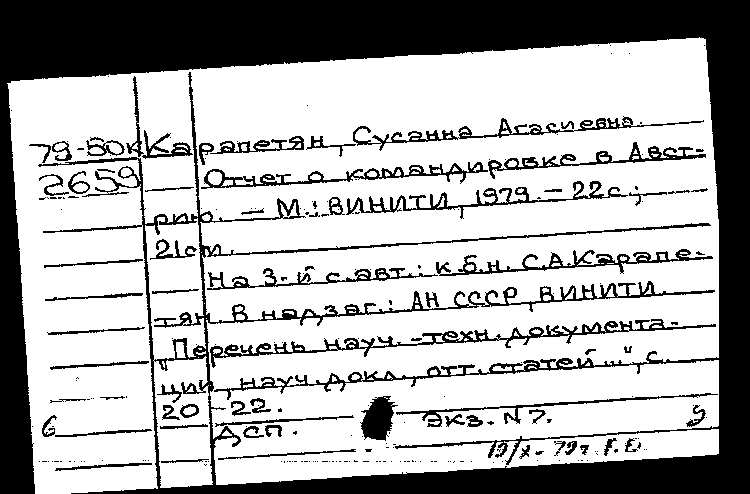 79-50к Карапетян, Сусанна Агасиевна.
2659 Отчет о командировке в Авст-
рию. — М.: ВИНИТИ, 1979. — 22с.;
21см.
На 3-й с.авт.: к.б.н. С.А.Карапе-
тян. В надзаг.: АН СССР, ВИНИТИ.
"Перечень науч.-техн.документа-
ции, науч.докл., отт.статей...", с.
20-22.
б ДСП. Экз. N 7. 9
19/X-79г